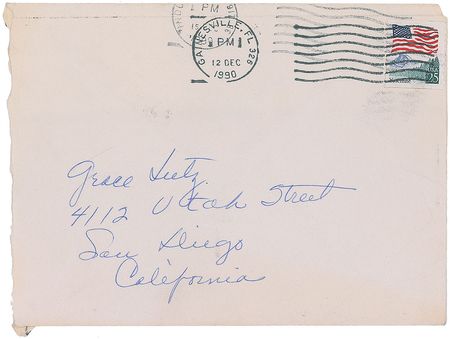 1 PM
GAINESVILLE, FL 326
PM
12 DEC
1990
25
Grace Lutz
4112 Utah Street
San Diego
California